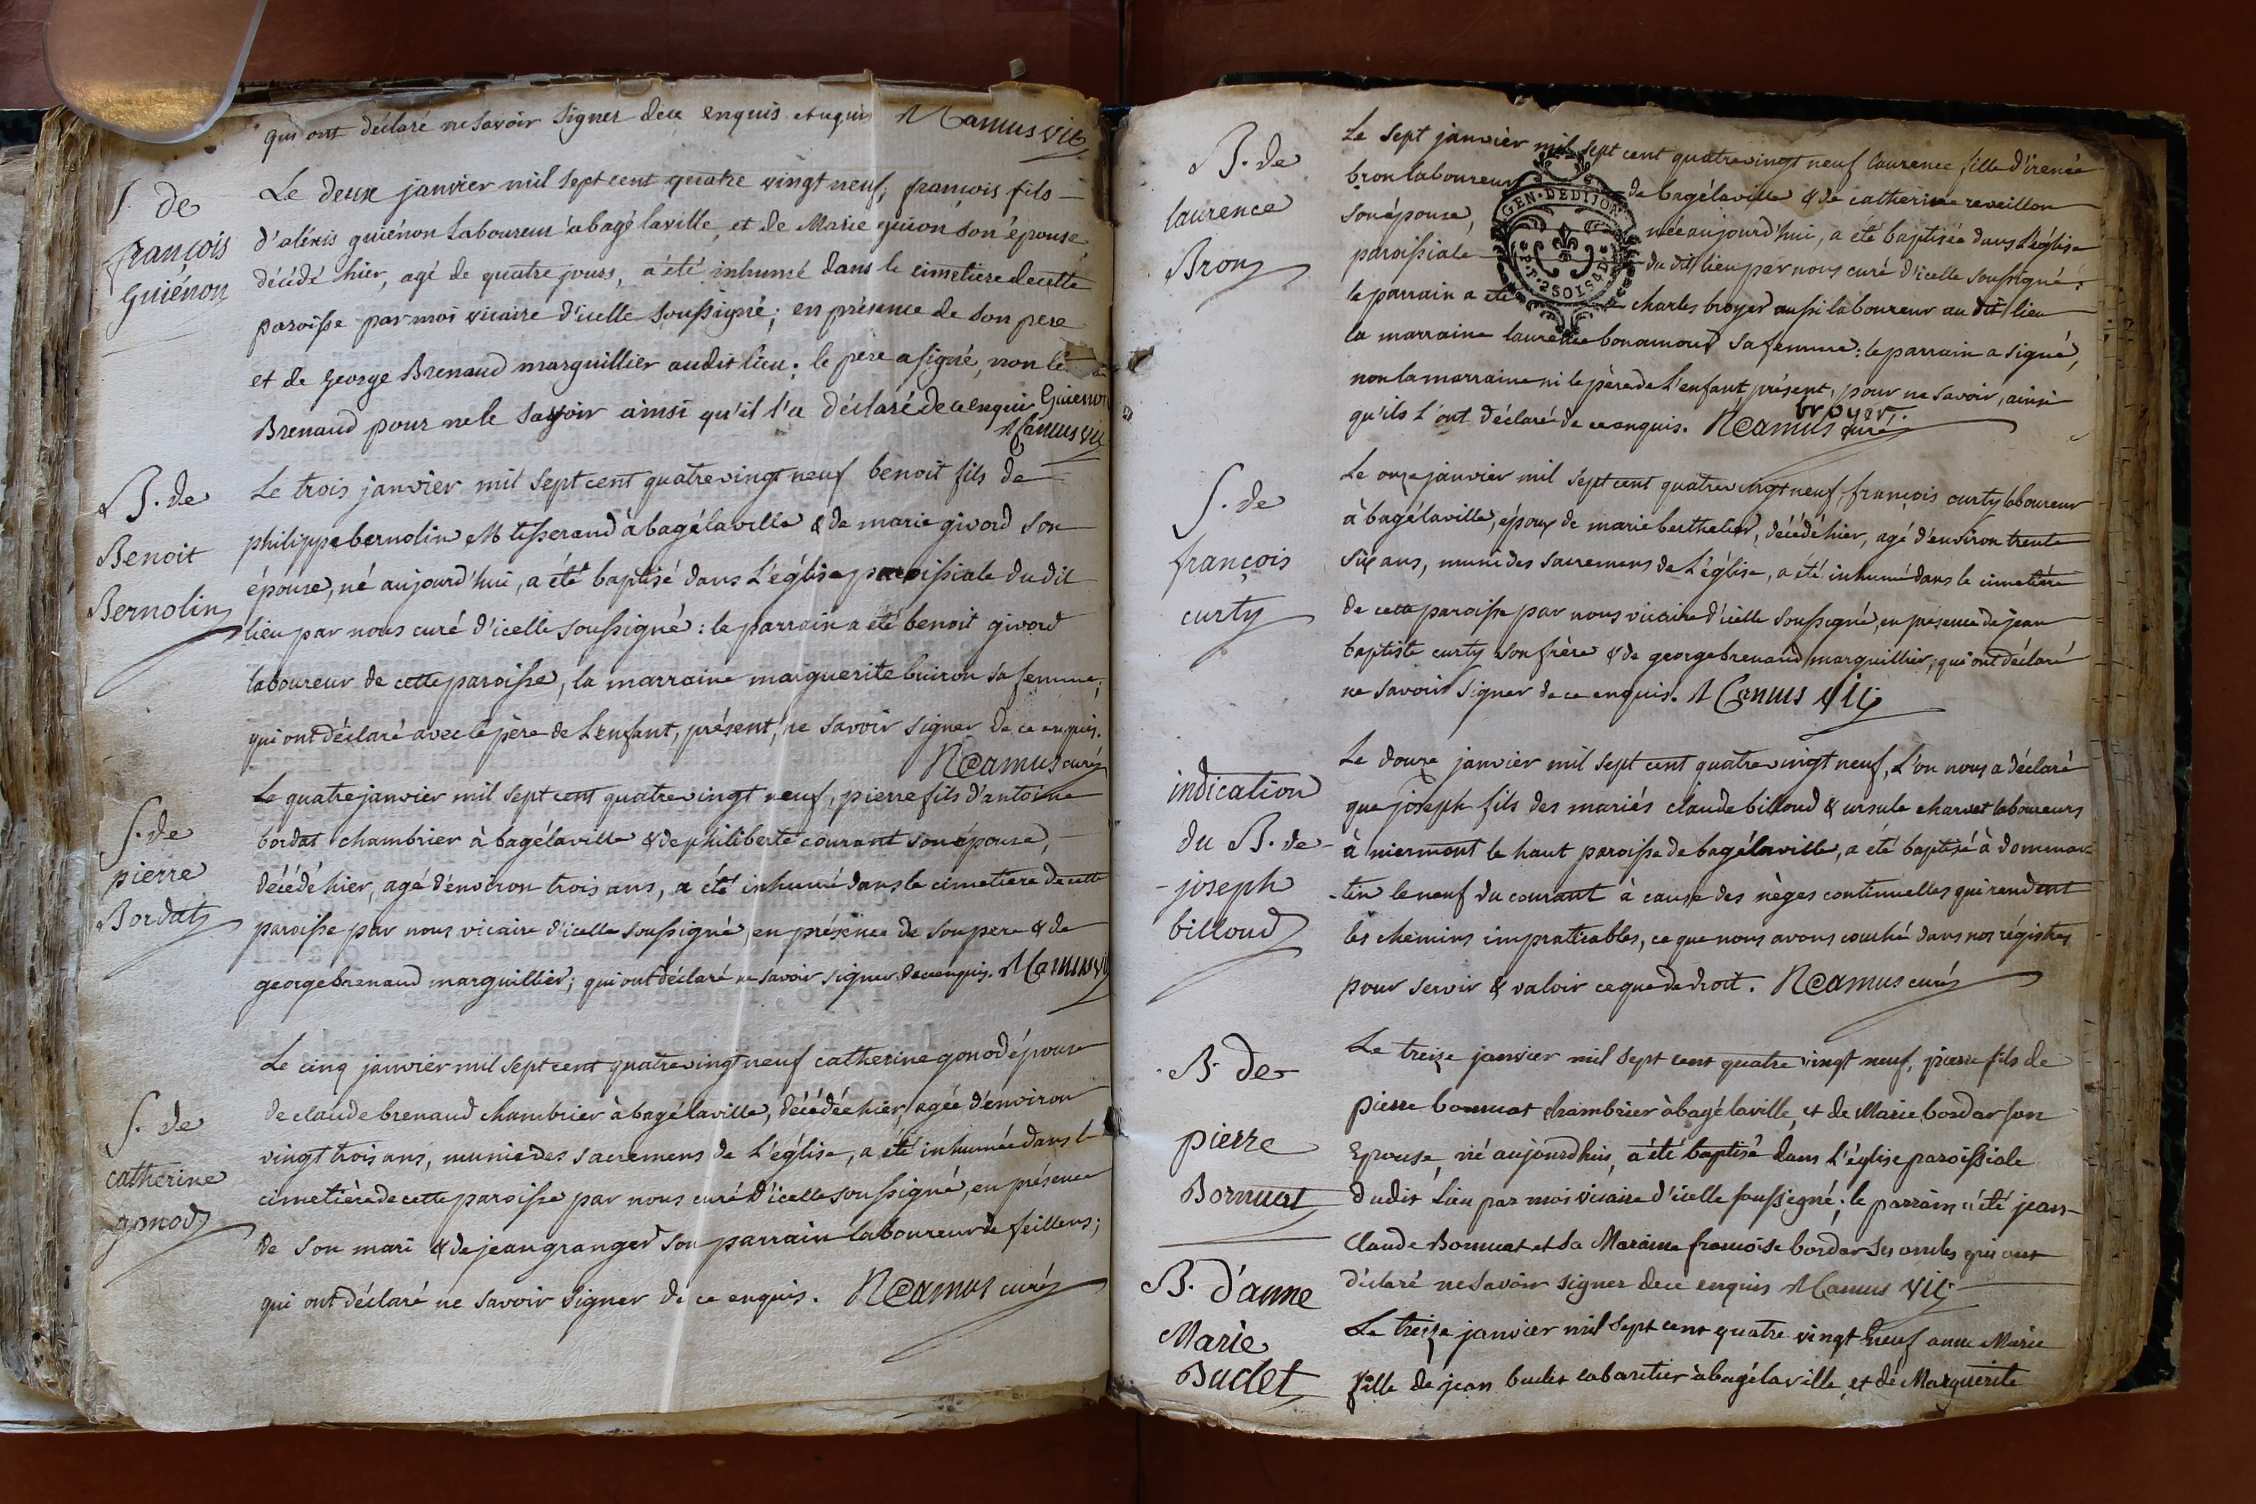 qui ont déclaré ne savoir signer dece enquis et requis N Camus vic
S. de
françois
Guiénon
Le deux janvier mil sept cent quatre vingt neuf, françois fils
d'aléxis guiénon Laboureur à bagé laville, et de Marie guion son épouse
décédé hier, agé de quatre jours, a été inhumé dans le cimetiere de cette
paroisse par moi vicaire d'icelle soussigné; en présence de son pere
et de George Brenaud marguillier audit lieu; le père a signé, non le
Brenaud pour ne le savoir ainsi qu'il l'a déclaré de ce enquis Guienon
N Camus vic
B. de
Benoit
Bernolin
Le trois janvier mil sept cent quatre vingt neuf benoit fils de
philippe bernolin M tisserand à bagélaville & de marie givord son
épouse, né aujourd'hui, a été baptisé dans L'église paroissiale du dit
lieu par nous curé d'icelle soussigné: le parrain a été benoit givord
laboureur de cette paroisse, la marraine marguerite buiron sa femme;
qui ont déclaré avec le père de L'enfant, présent, ne savoir signer de ce enquis.
N Camus curé
S. de
pierre
Bordat
Le quatre janvier mil sept cent quatre vingt neuf, pierre fils d'antoine
bordat chambrier à bagélaville & de philiberte courant son épouse,
décédé hier, agé d'environ trois ans, a été inhumé dans le cimetiere de cette
paroisse par nous vicaire d'icelle soussigné, en présence de son pere & de
george brenaud marguillier; qui ont déclaré ne savoir signer de ce enquis. N Camus vic
S. de
catherine
gonod
Le cinq janvier mil sept cent quatre vingt neuf catherine gonod épouse
de claude brenaud chambrier à bagélaville, décédée hier, agée d'environ
vingt trois ans, munie des sacremens de L'église, a été inhumée dans le
cimetière de cette paroisse par nous curé d'icelle soussigné, en présence
de son mari & de jean granger son parrain laboureur de feillens;
qui ont déclaré ne savoir signer de ce enquis. N Camus curé
B. de
laurence
Bron
Le sept janvier mil sept cent quatre vingt neuf laurence, fille d'irenée
bron laboureur de bagélaville & de catherine reveillon
son épouse, née aujourd'hui, a été baptisée dans L'église
paroissiale du dit lieu par nous curé d'icelle soussigné:
le parrain a été charles broyer aussi laboureur au dit lieu
la marraine laurence bonamour sa femme: le parrain a signé,
non la marraine ni le père de L'enfant, présent, pour ne savoir, ainsi
qu'ils L'ont déclaré de ce enquis. N Camus curé broyer.
GEN. DE DIJON
S. de
françois
curty
Le onze janvier mil sept cent quatre vingt neuf, françois curty laboureur
à bagélaville, époux de marie berthelier, décédé hier, agé d'environ trente
six ans, muni des sacremens de L'église, a été inhumé dans le cimetière
de cette paroisse par nous vicaire d'icelle soussigné, en présence de jean
baptiste curty son frère & de george brenaud marguillier; qui ont déclaré
ne savoir signer de ce enquis. N Camus vic
indication
du B. de
joseph
billoud
Le douze janvier mil sept cent quatre vingt neuf, L'on nous a déclaré
que joseph fils des mariés claude billoud & ursule charvet laboureurs
à niermont le haut paroisse de bagélaville, a été baptisé à dommar
-tin le neuf du courant à cause des nèges continuelles qui rendent
les chemins impraticables, ce que nous avons couché dans nos régistres
pour servir & valoir ce que de droit. N Camus curé
B. de
pierre
Bornuat
Le treize janvier mil sept cent quatre vingt neuf, pierre fils de
pierre bornuat chambrier à bagé laville, et de Marie bordar son
Epouse, né aujourdhui, a été baptisé dans L'église paroissiale
dudit Lieu par moi vicaire d'icelle soussigné; le parrain a été jean
Claude Bornuat et sa Maraine francoise bordar ses oncles qui ont
déclaré ne savoir signer dece enquis N Camus vic
B. d'anne
Marie
Budet
Le treize janvier mil sept cent quatre vingt neuf anne Marie
fille de jean budet cabaretier à bagélaville, et de Marguerite